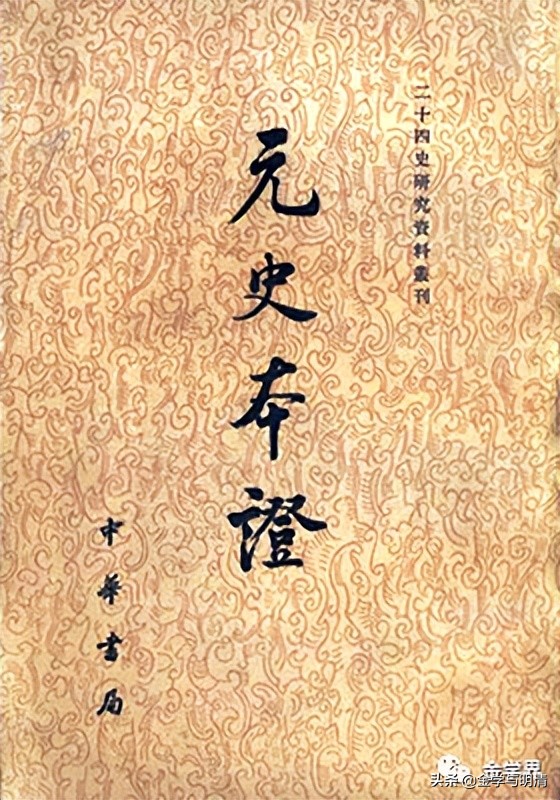 二十四史研究資料叢刊
元史本證
中華書局
金学界
头条 @金学与明清